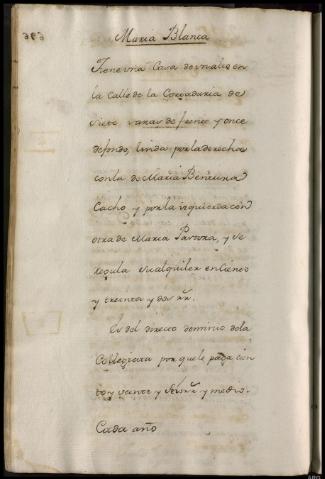 Maria Blanca
Tiene vna Casa de vn alto en
la Calle de la Corgaduria de
siete varas de frente y once
de fondo, linda por la derecha
con la de Maria Bentura
Cacho y por la izquierda con
otra de Maria Pastora, y se
regula su alquiler en ciento
y treinta y dos rr.
Es del directo dominio de la
Collegiata por que le paga cien
to y veinte y rr. y medio.
Cada año